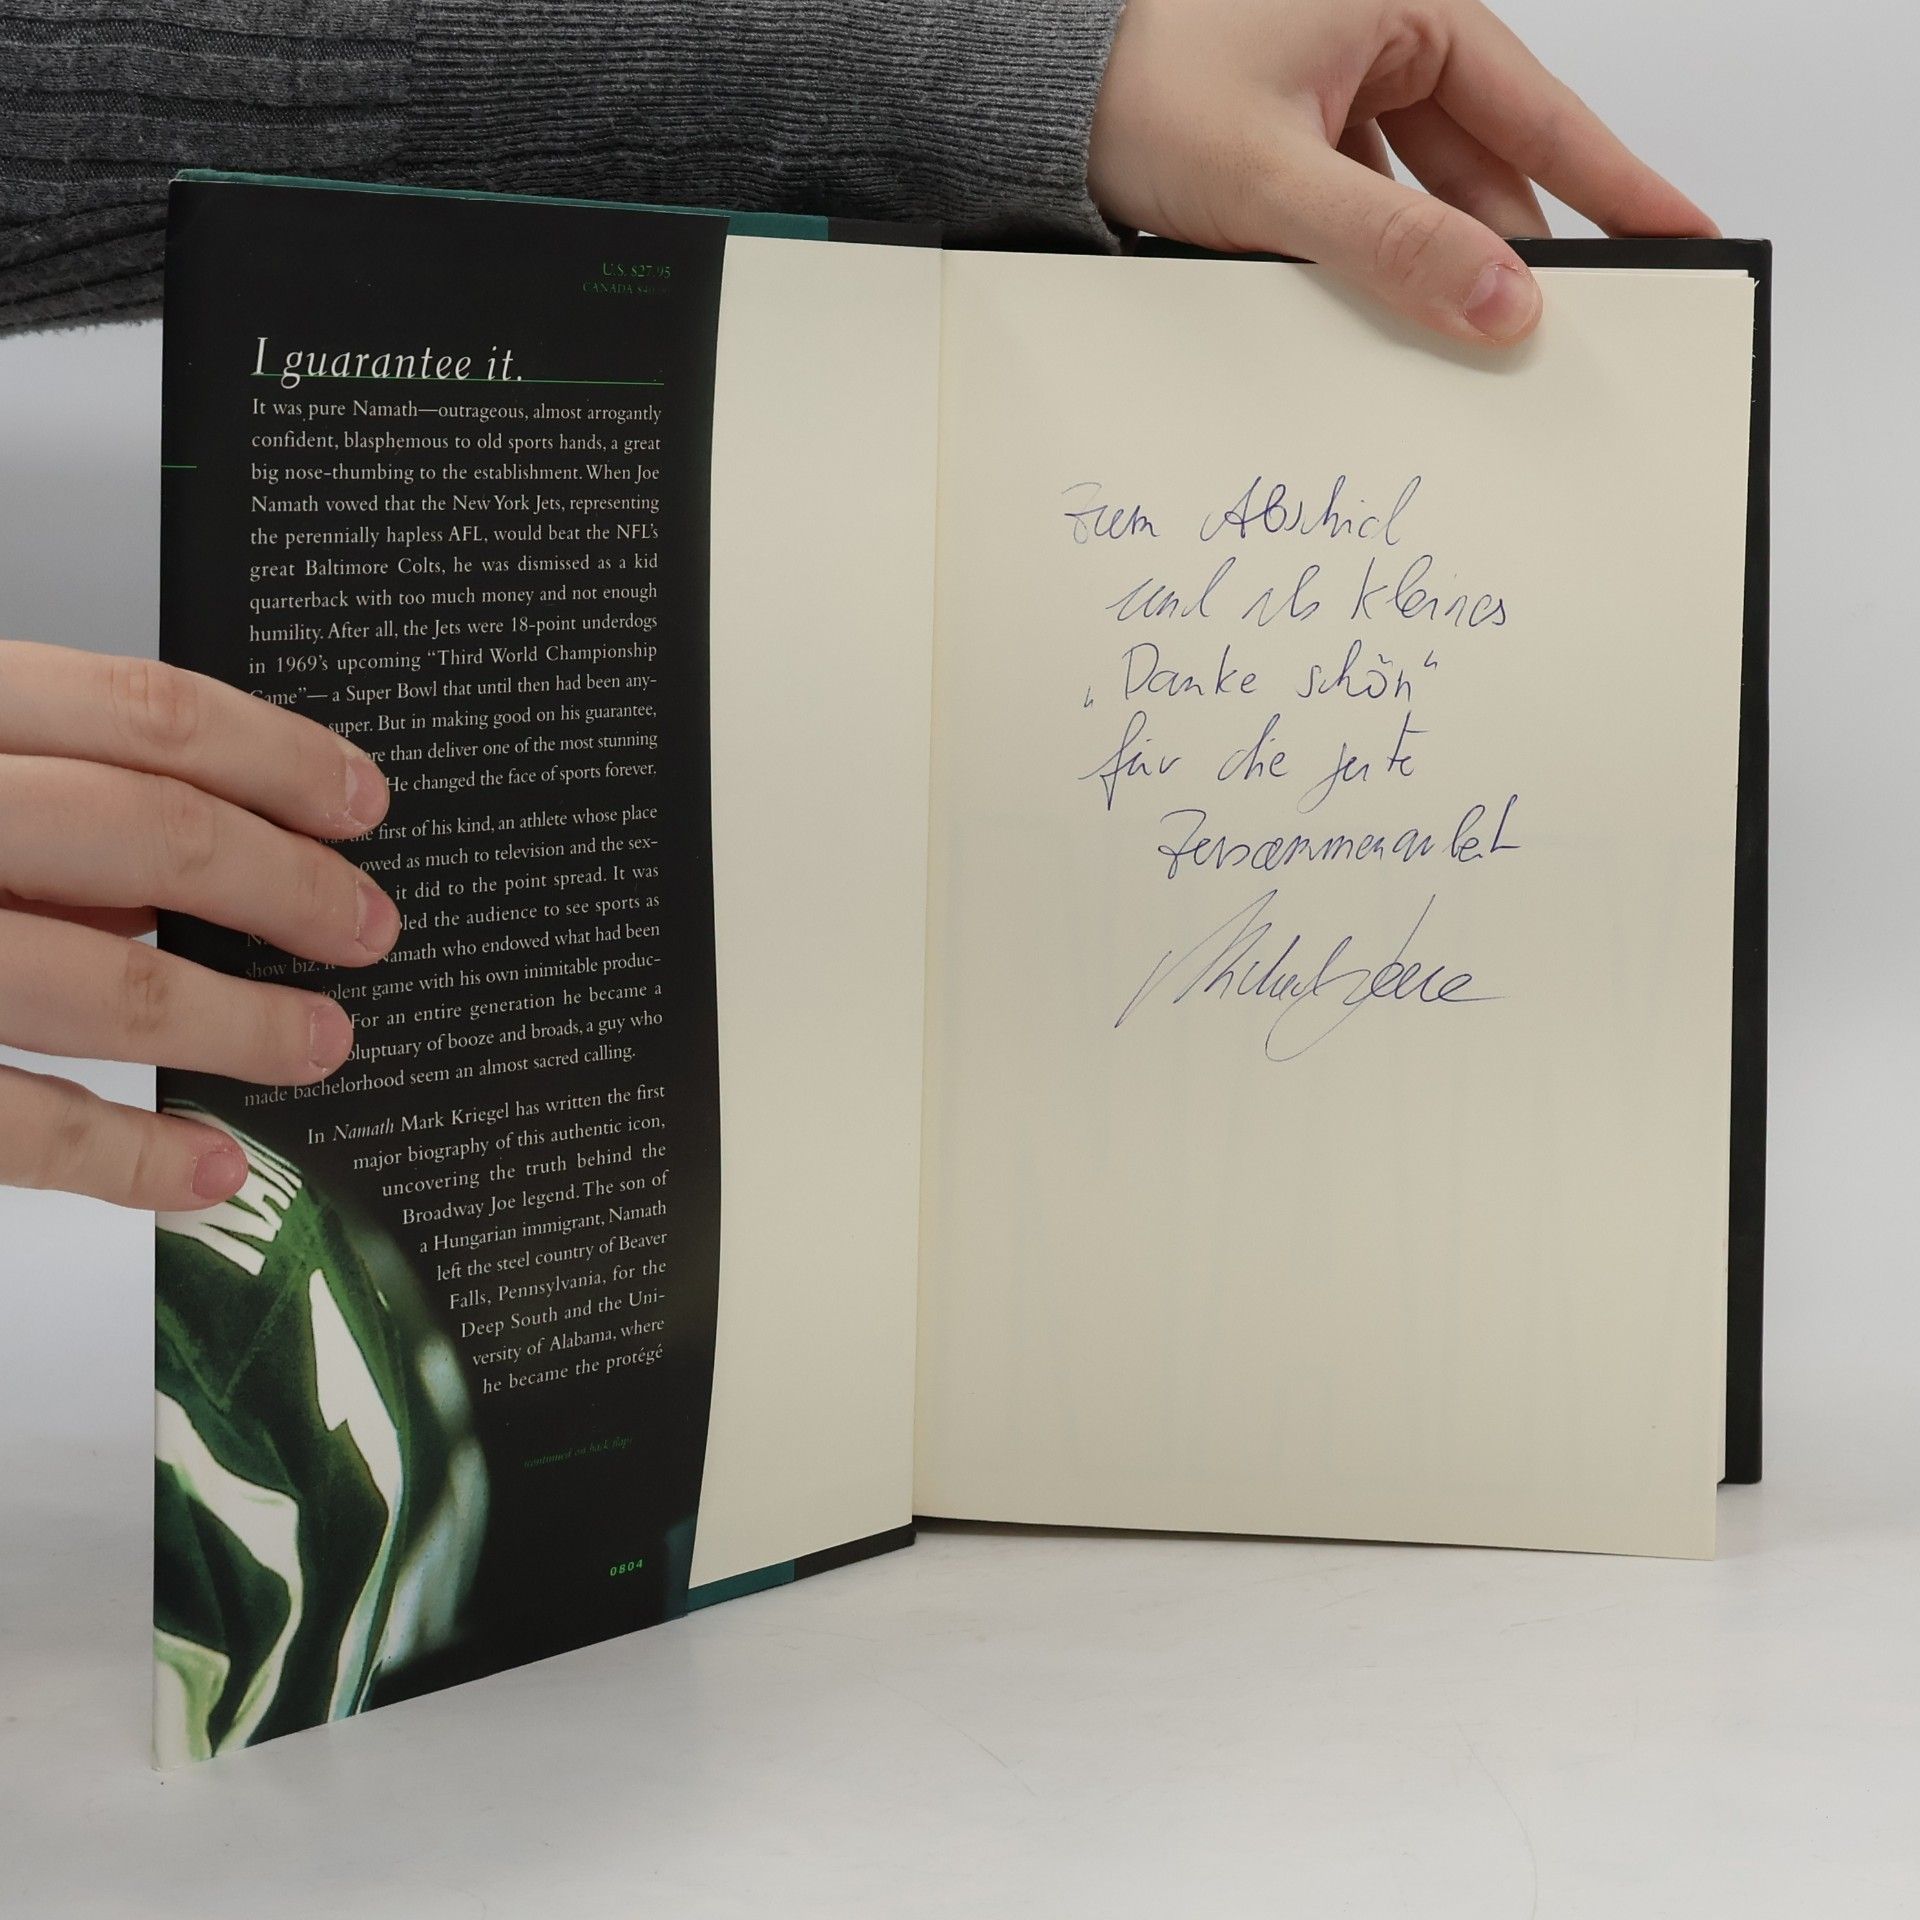 U.S. $27.95
CANADA
I guarantee it.
It was pure Namath—outrageous, almost arrogantly
confident, blasphemous to old sports hands, a great
big nose-thumbing to the establishment. When Joe
Namath vowed that the New York Jets, representing
the perennially hapless AFL, would beat the NFL's
great Baltimore Colts, he was dismissed as a kid
quarterback with too much money and not enough
humility. After all, the Jets were 18-point underdogs
in 1969's upcoming “Third World Championship
Game”— a Super Bowl that until then had been any-
super. But in making good on his guarantee,
than deliver one of the most stunning
He changed the face of sports forever.
first of his kind, an athlete whose place
owed as much to television and the sex-
it did to the point spread. It was
the audience to see sports as
show biz. Namath who endowed what had been
game with his own inimitable produc-
For an entire generation he became a
of booze and broads, a guy who
made bachelorhood seem an almost sacred calling.
In Namath Mark Kriegel has written the first
major biography of this authentic icon,
uncovering the truth behind the
Broadway Joe legend. The son of
a Hungarian immigrant, Namath
left the steel country of Beaver
Falls, Pennsylvania, for the
Deep South and the Uni-
versity of Alabama, where
he became the protégé
(continued on back flap)
0804
Zum Abschied
und als kleines
„Danke schön“
für die gute
Zusammenarbeit